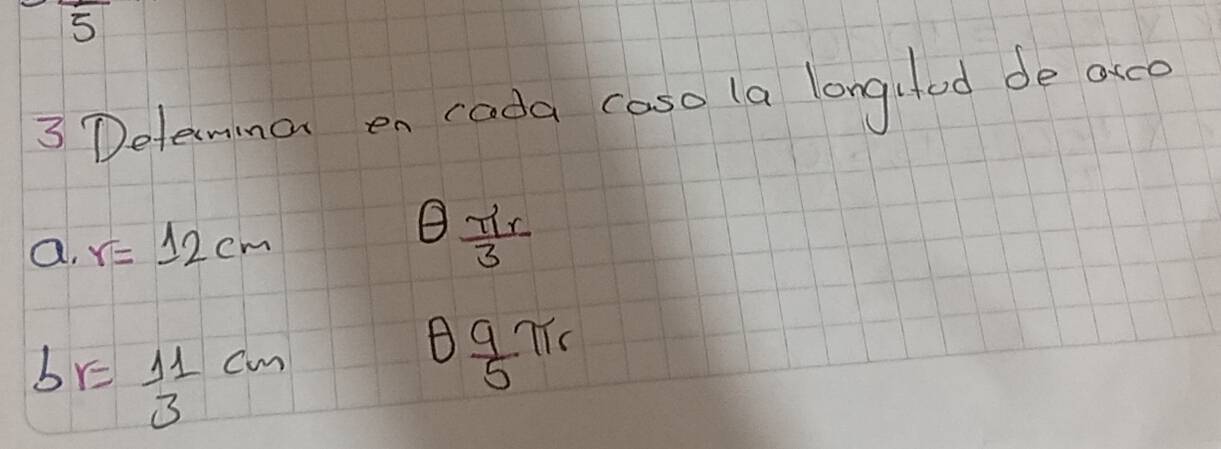 5
3 Determinar en cada caso la longitud de arco
a. r= 12 cm θ πr/3
b r= 11/3 cm θ 9/5 πr